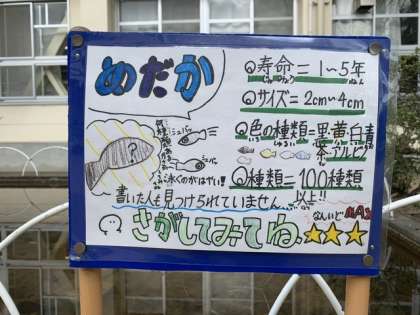 めだか
◎寿命=1~5年
じゅみょう ねん
◎サイズ=2cm~4cm
◎色の種類=黒黄白青
茶アルビノ
◎種類=100種類
以上!!
泳ぐのがはやい!
書いた人も見つけられていません…
さがしてみてね
なんいどMAX
★★★